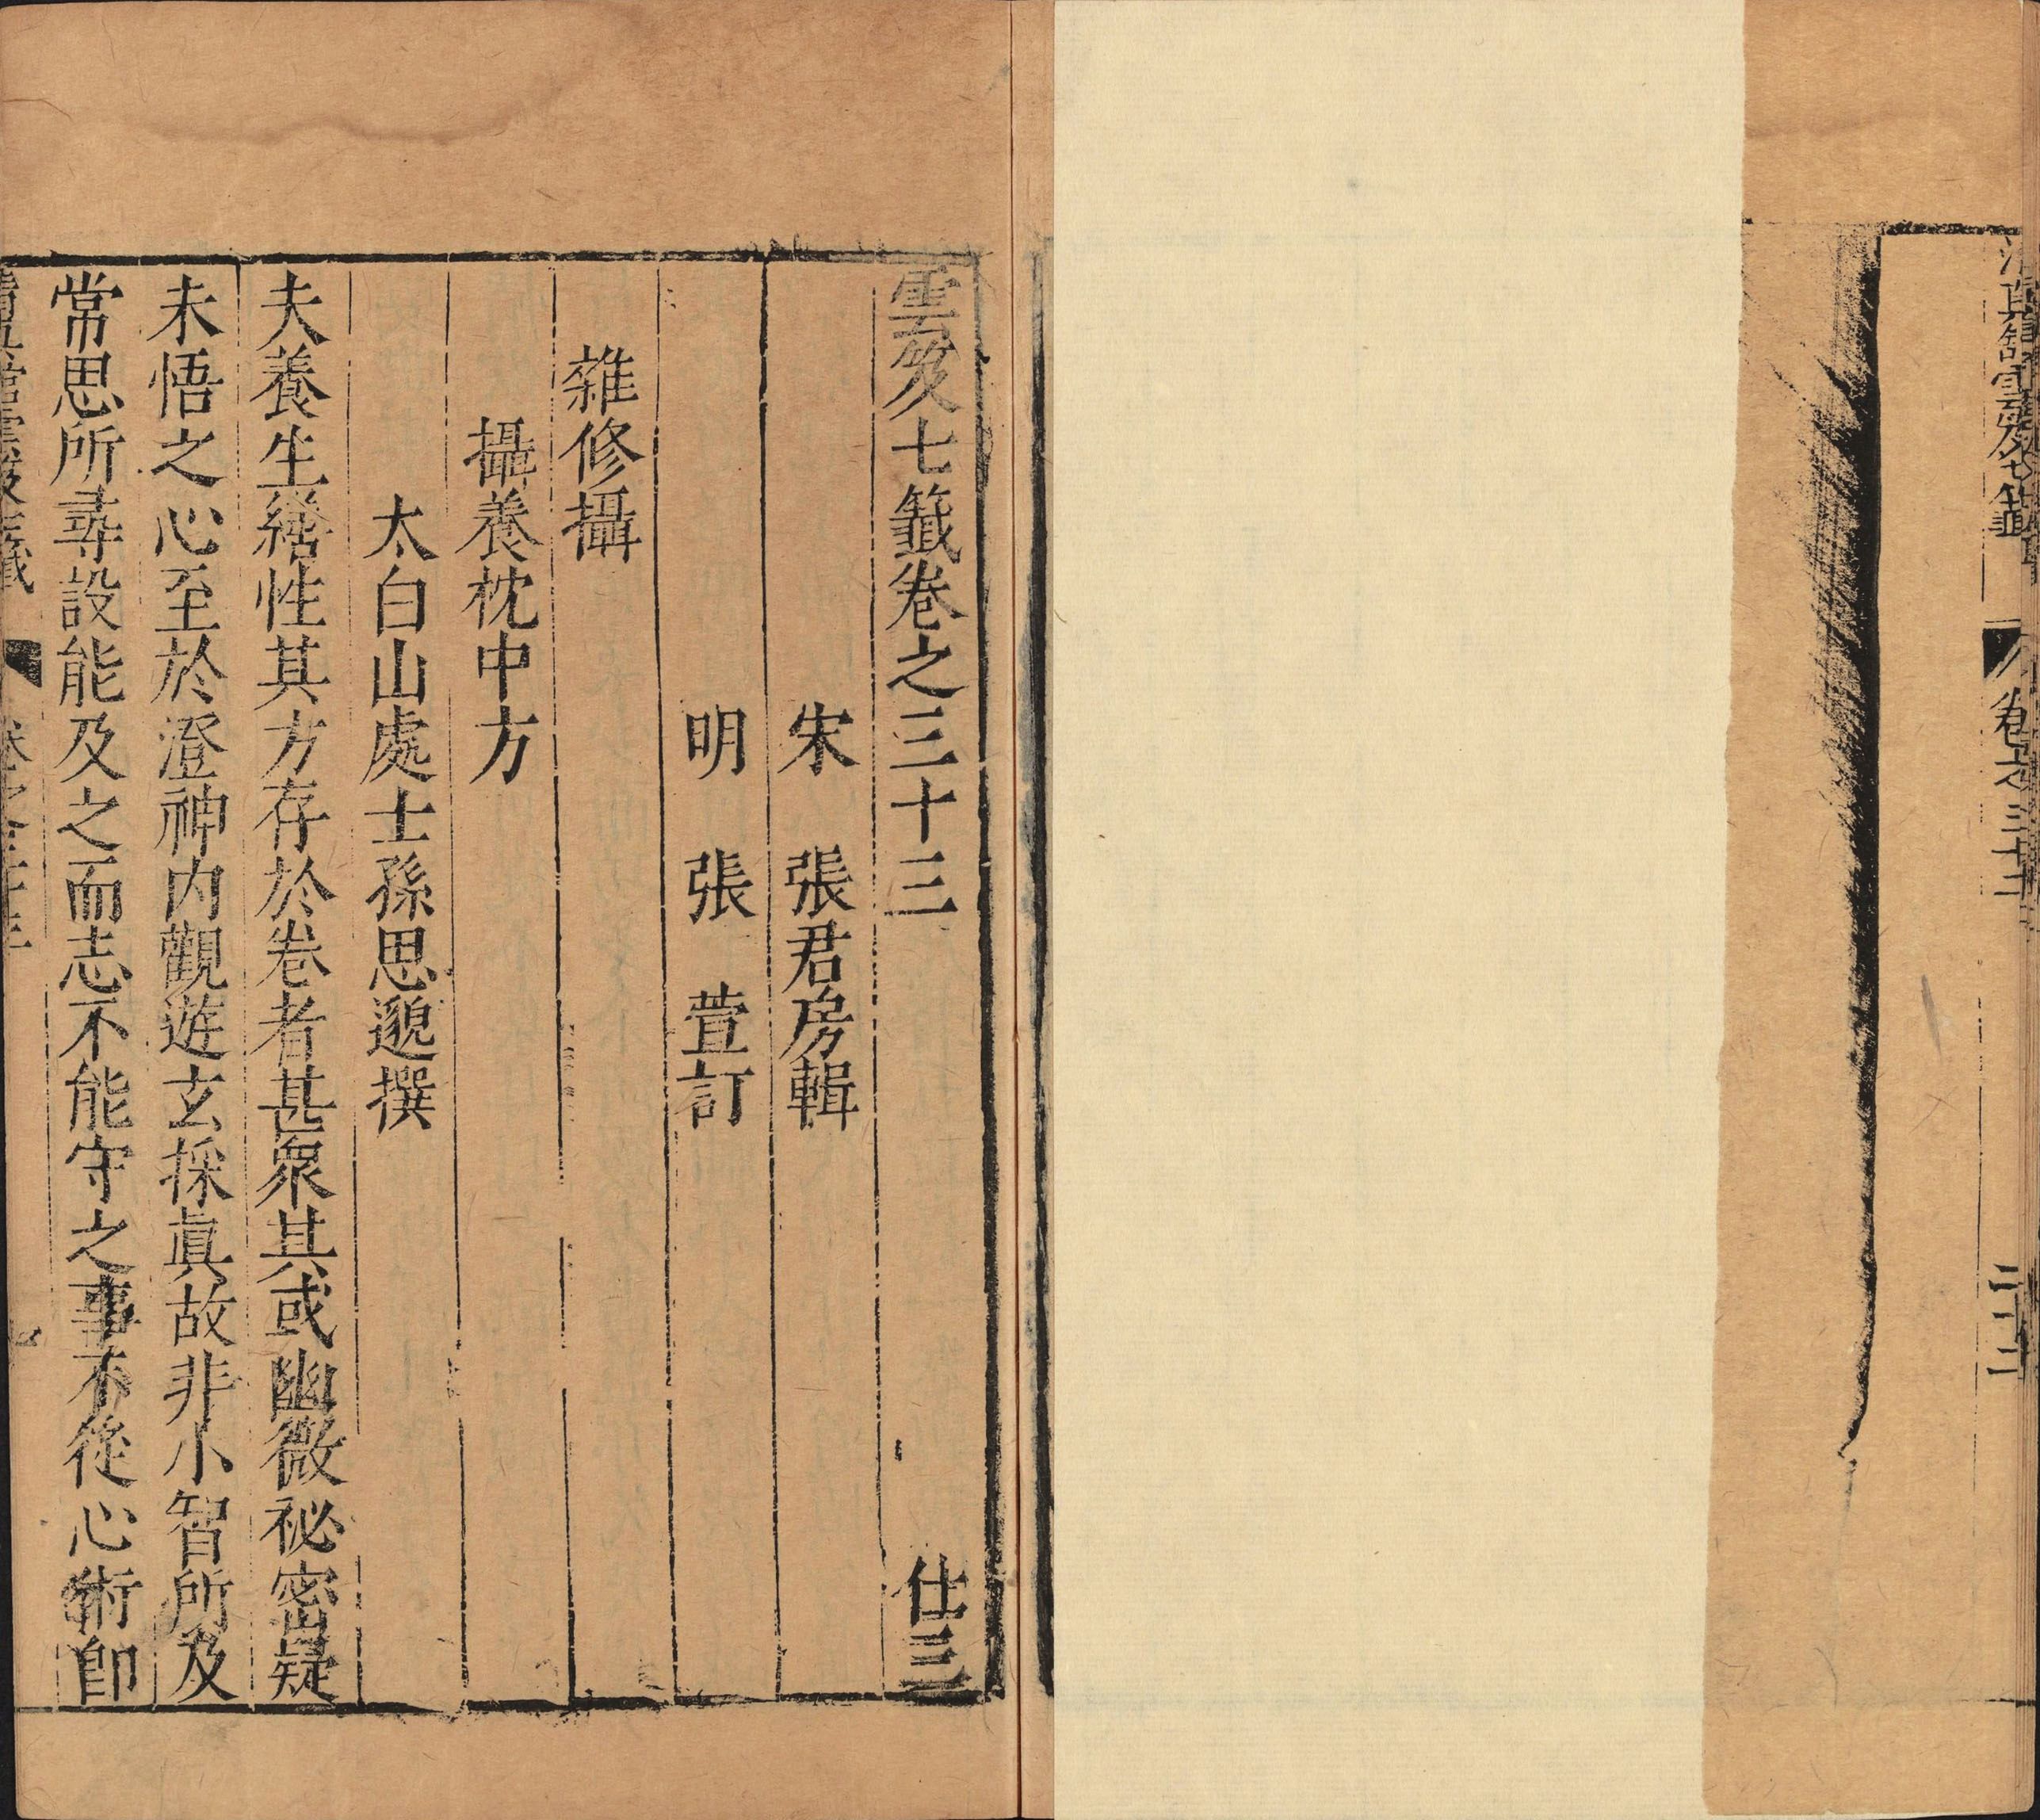 清真館雲笈七籤 卷之三十二 二十二
雲笈七籤卷之三十三 仕三
宋 張君房輯
明 張 萱訂
雜修攝
攝養枕中方
太白山處士孫思邈撰
夫養生繕性其方存於卷者甚衆其或幽微祕密疑
未悟之心至於澄神内觀遊玄採眞故非小智所及
常思所尋設能及之而志不能守之事不從心術卽
清真館雲笈七籤 卷之三十三